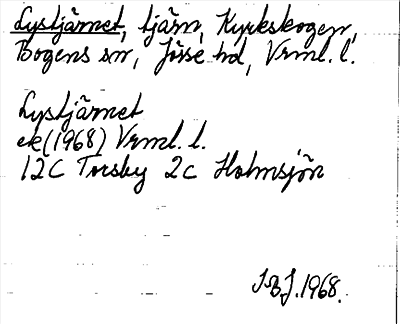 Lystjärnet, tjärn, Kyrkskogen,
Bogens sn, Jösse hd, Vrml. l.
Lystjärnet
ek (1968) Vrml. l.
12C Torsby 2c Holmsjön
SBJ. 1968.